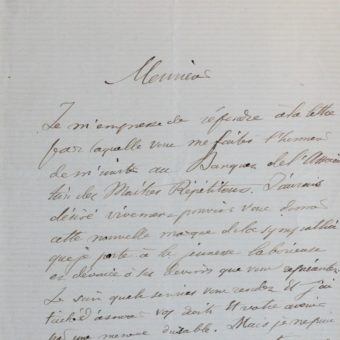 Monsieur
Je m'empresse de répondre à la lettre
par laquelle vous me faites l'honneur
de m'inviter au Banquet de l'Associa
tion des Maîtres Répétiteurs. J'aurais
désiré vivement pouvoir vous donner
cette nouvelle marque de la sympathie
que je porte à la jeunesse laborieuse
et dévouée à ses devoirs que vous représentez.
Je sais quels services vous rendez et j'ai
d'assurer vos droits et votre avenir
une mesure durable. Mais je ne puis